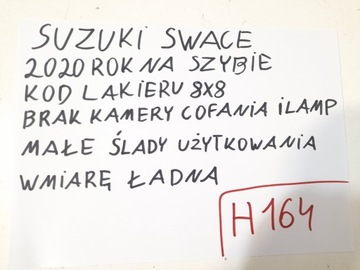 SUZUKI SWACE
2020 ROK NA SZYBIE
KOD LAKIERU 8X8
BRAK KAMERY COFANIA i LAMP
MAŁE ŚLADY UŻYTKOWANIA
WMIARĘ ŁADNA
H164